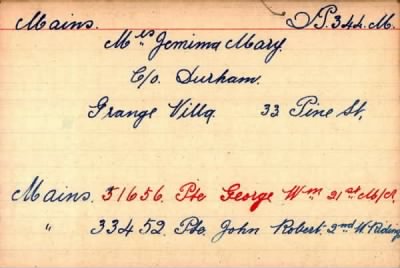 Mains. P. 344. M.
Mrs Jemima Mary.
C/o. Durham.
Grange Villa 33 Pine St,
Mains. 51656. Pte George Wm 21st M/c.
" 33452. Pte. John Robert. 2nd W Riding